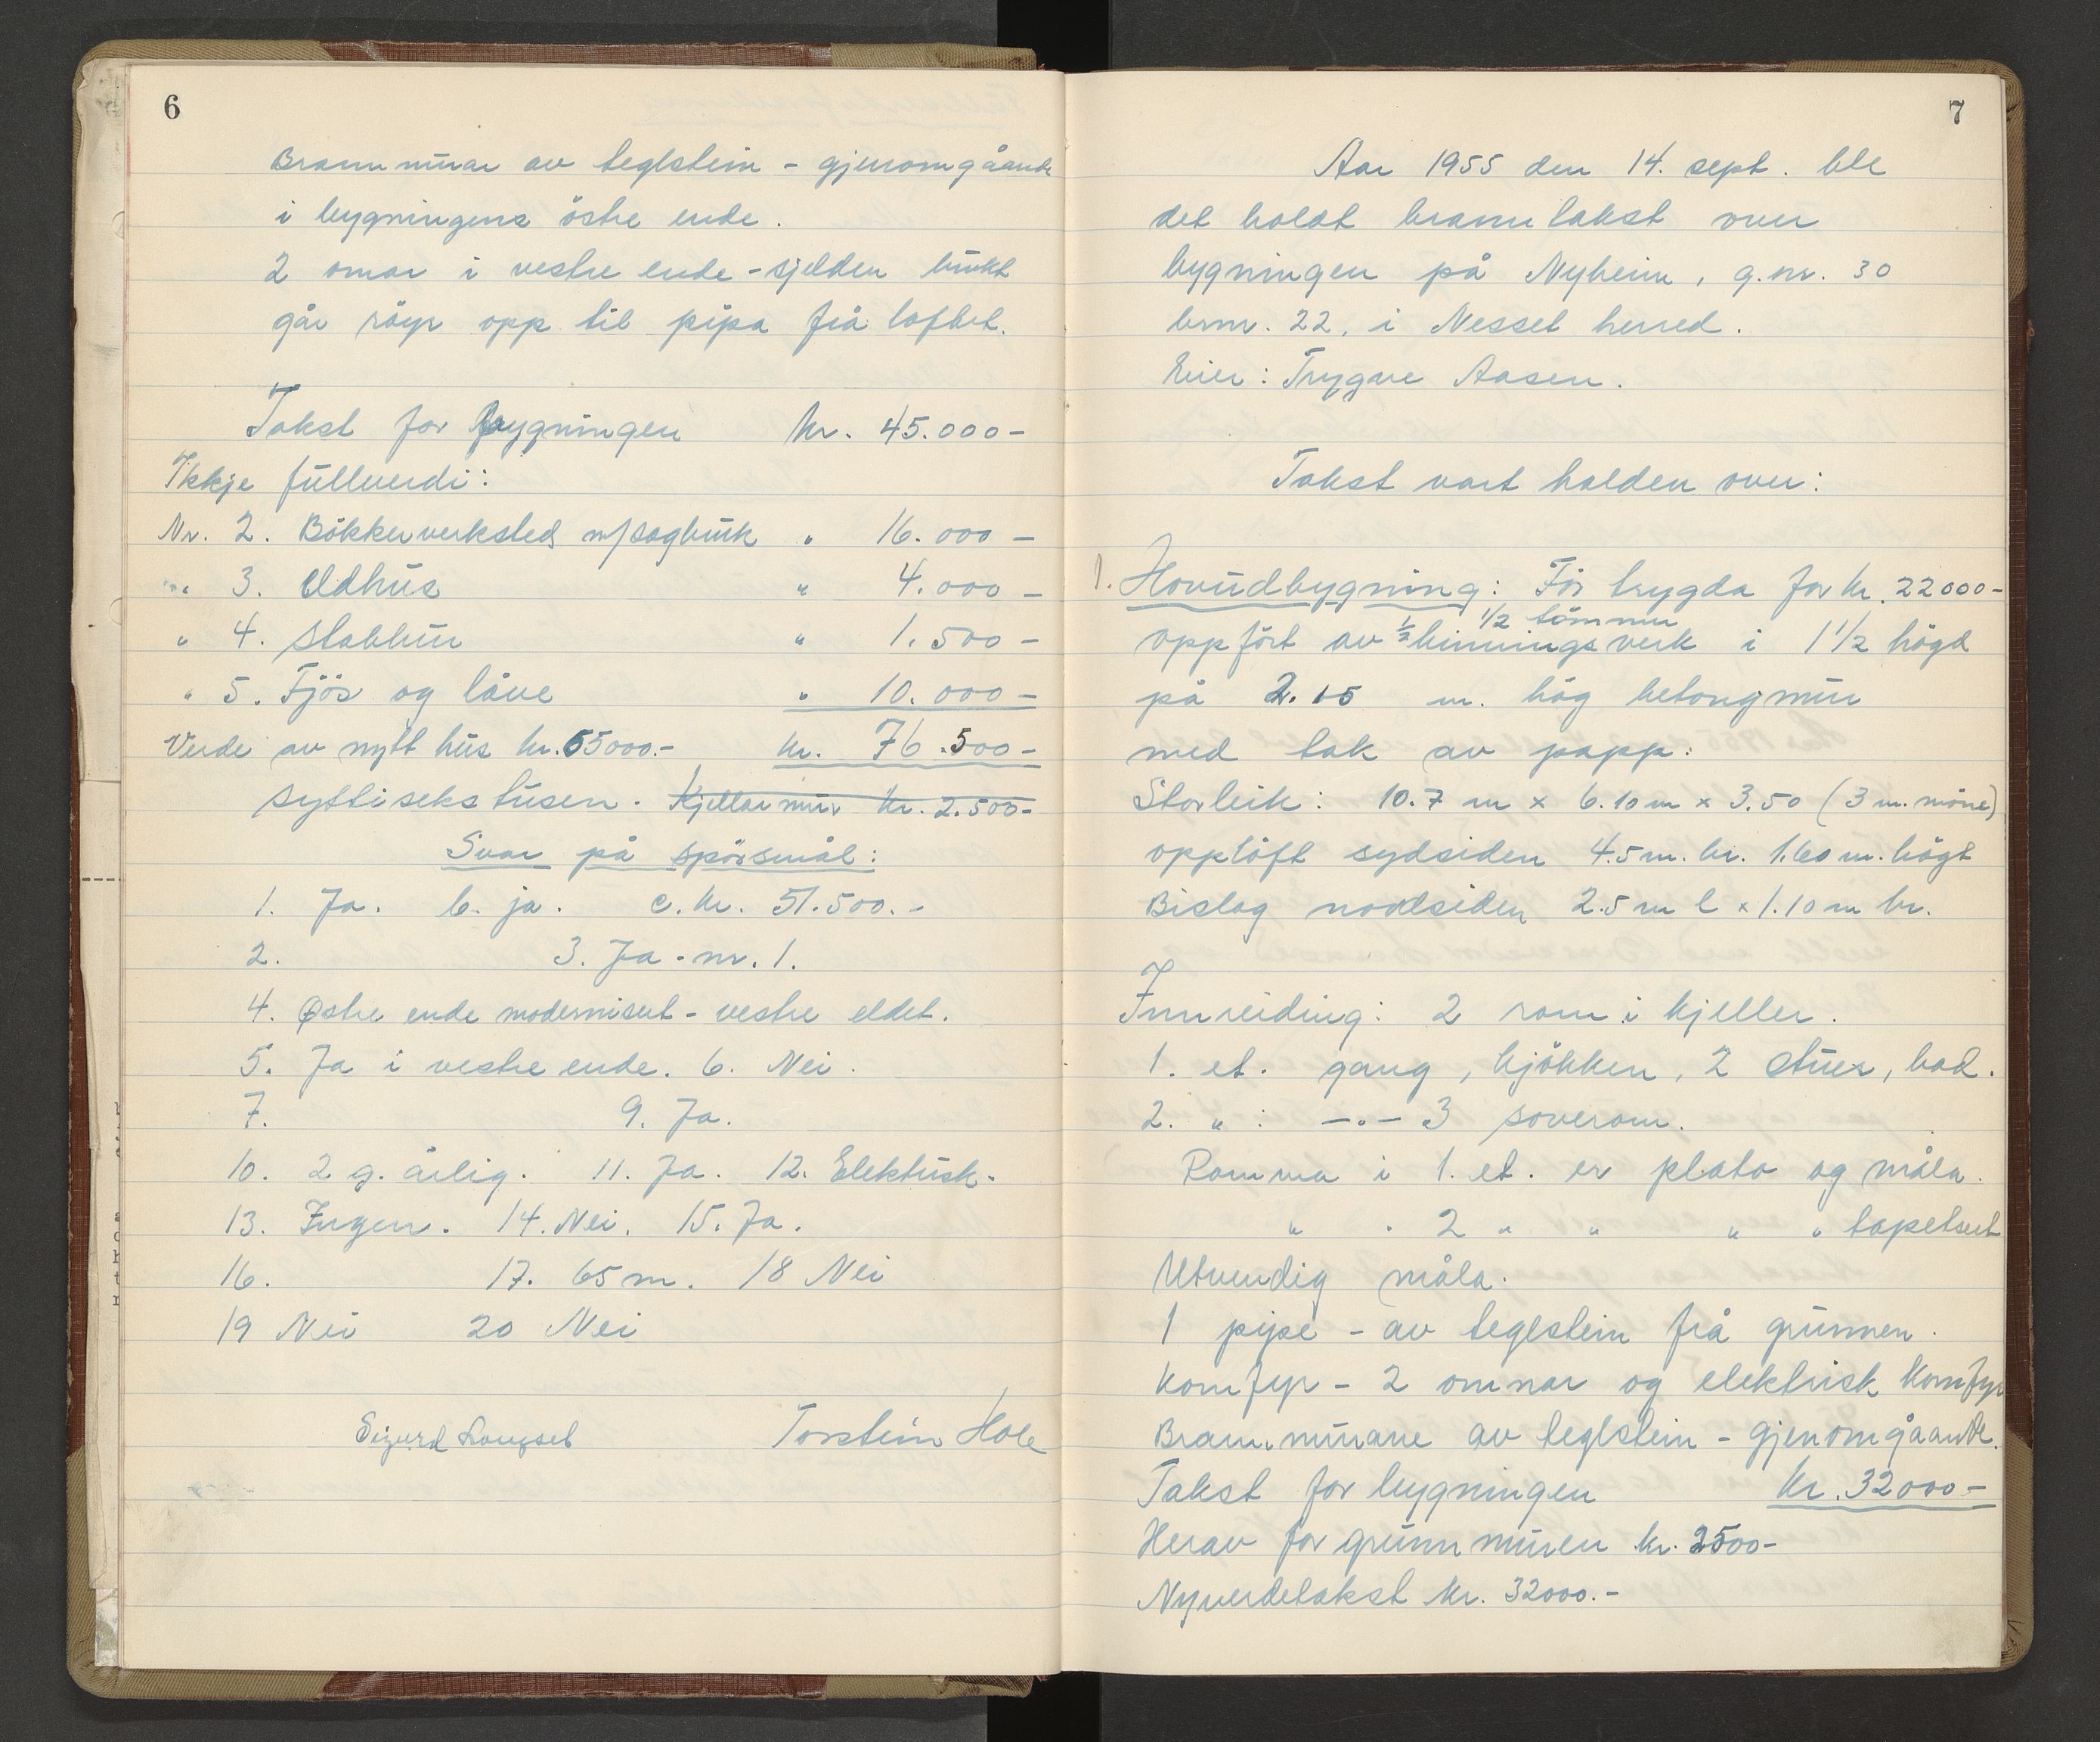 6
Brannmurar av teglstein - gjenomgåande
i bygningens östre ende.
2 omar i vestre ende - sjelden brukt
går röyr opp til pipa frå loftet.
Takst for bygningen kr. 45.000-
Ikkje fullverdi:
Nr. 2. Bökkerverksted m/sagbruk " 16.000-
" 3. Eldhus " 4.000-
" 4. Stabbur " 1.500-
" 5. Fjös og låve " 10.000-
Verde av nytt hus kr. 65000.- kr. 76.500-
syttisekstusen. Kjellarmur kr. 2.500-
Svar på spörsmål:
1. Ja. b. ja. c. kr. 51.500.-
2. 3. Ja - nr. 1.
4. Østre ende modernisert - vestre eldet.
5. Ja i vestre ende. 6. Nei.
7. 9. Ja.
10. 2 g. årlig. 11. Ja. 12. Elektrisk.
13. Ingen. 14. Nei. 15. Ja.
16. 17. 65 m. 18 Nei
19 Nei 20 Nei
Sigurd Langset Torstein Hole
7
Aar 1955 den 14. sept. ble
det holdt branntakst over
bygningen på Nyheim, g.nr. 30
brnr. 22, i Nesset herred.
Eier: Trygve Aasen.
Takst vart halden over:
1. Hovudbygning: För trygda for kr. 22000-
1/2 tömmer
oppfört av 1/2 binningsverk i 1 1/2 högd
på 2.15 m. hög betongmur
med tak av papp.
Storleik: 10.7 m x 6.10 m x 3.50 (3 m. möne)
opplöft sydsiden 4.5 m. br. 1.60 m. högt
Bislag nordsiden 2.5 m l x 1.10 m br.
Innreiding: 2 rom i kjeller.
1. et. gang, kjökken, 2 stuer, bad.
2. " : -"- 3 soverom.
Romma i 1. et. er plata og måla.
" " 2 " " " " tapetsert
Utvendig måla.
1 pipe - av teglstein frå grunnen.
Komfyr - 2 omnar og elektrisk komfyr
Brannmurane av teglstein - gjenomgåande.
Takst for bygningen kr. 32000-
Herav for grunnmuren kr. 2500-
Nyverdetakst kr. 32000.-